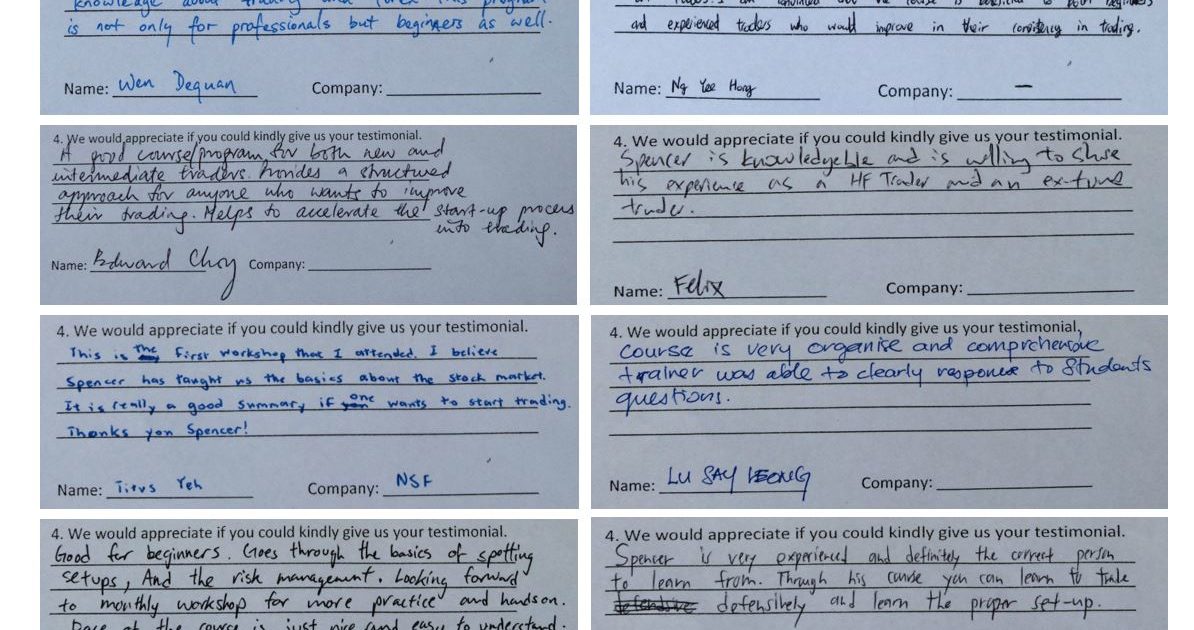 knowledge about trading and
is not only for professionals but beginners as well.
Name: Wen Dequan Company:
and experienced traders who would improve in their consistency in trading.
Name: Ng Yee Hong Company: —
4. We would appreciate if you could kindly give us your testimonial.
A good course/program for both new and
intermediate traders. Provides a structured
approach for anyone who wants to improve
their trading. Helps to accelerate the start-up process
into trading.
Name: Edward Choy Company:
4. We would appreciate if you could kindly give us your testimonial.
Spencer is knowledgeable and is willing to share
his experience as a HF Trader and an ex-fund
trader.
Name: Felix Company:
4. We would appreciate if you could kindly give us your testimonial.
This is the first workshop that I attended. I believe
Spencer has taught us the basics about the stock market.
It is really a good summary if one wants to start trading.
Thanks you Spencer!
Name: Titus Yeh Company: NSF
4. We would appreciate if you could kindly give us your testimonial,
course is very organise and comprehensive
trainer was able to clearly response to Students
questions.
Name: LU SAY LEONG Company:
4. We would appreciate if you could kindly give us your testimonial.
Good for beginners. Goes through the basics of spotting
setups, And the risk management. Looking forward
to monthly workshop for more practice and handson.
Pace of the course is just nice and easy to understand.
4. We would appreciate if you could kindly give us your testimonial.
Spencer is very experienced and definitely the correct person
to learn from. Through his course you can learn to trade
defensive defensively and learn the proper set-up.